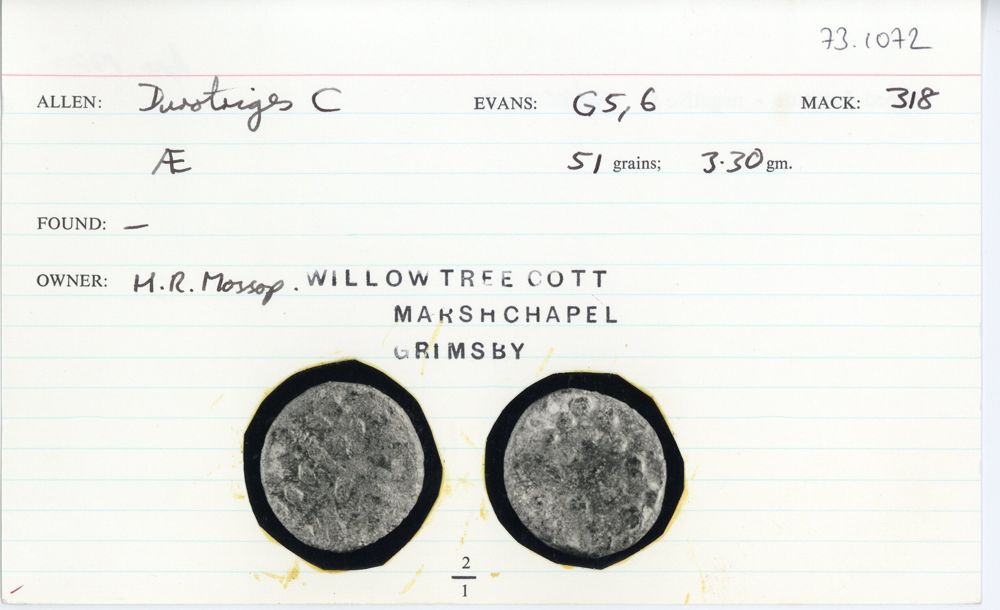 73.1072
ALLEN: Durotriges C EVANS: G5,6 MACK: 318
Æ 51 grains; 3.30 gm.
FOUND: —
OWNER: H.R. Mossop. WILLOW TREE COTT
MARSHCHAPEL
GRIMSBY
2
1